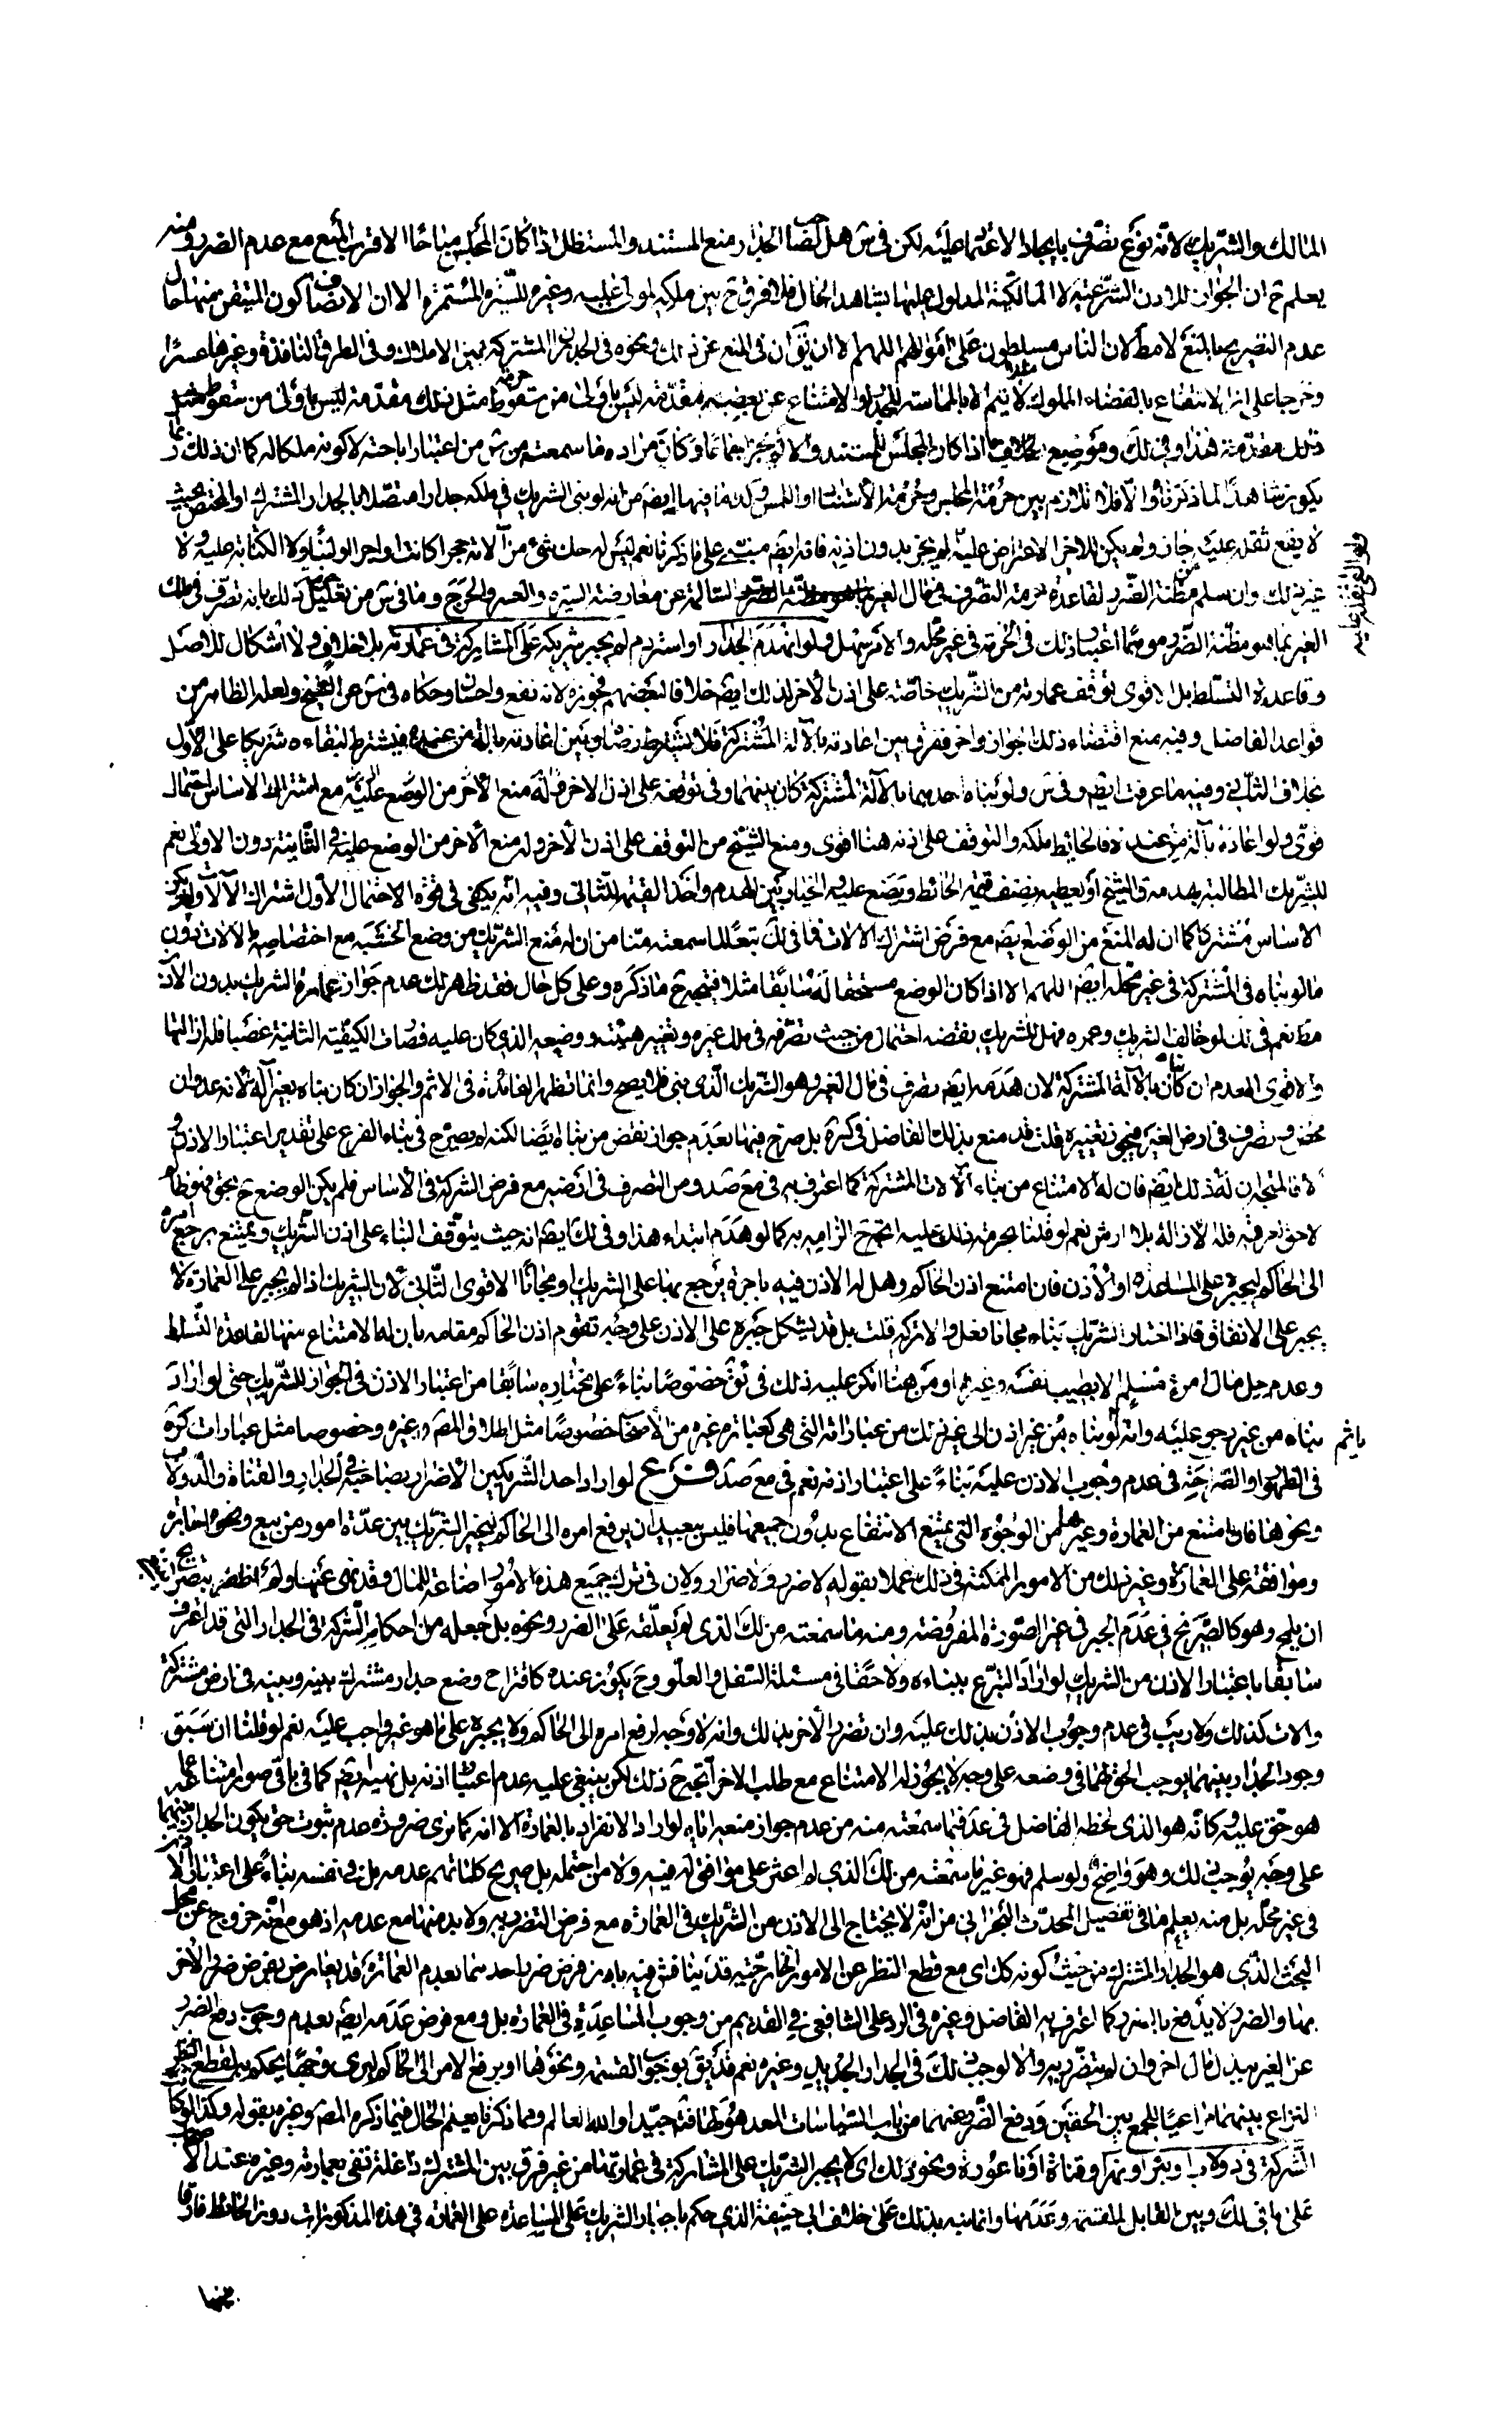 المالك والشريك لانه نوع تصرف بايجاد الاعتماد عليه لكن في س هل لصاحب الجدار منع المستند والمستظل اذا كان المجلس مباحا الاقرب المنع مع عدم الضرر ومنه
يعلم ح ان الجواز للاذن الشرعية لا المالكية المدلول عليها بشاهد الحال فلا فرق ح بين ملكه لمولى عليه وغيره للسيرة المستمرة الا ان الانصاف كون المتيقن منها حال
عدم التصريح بالمنع لا مط لان الناس مسلطون على اموالهم اللهم الا ان يق ان في المنع عن ذلك ونحوه في الجدران المشتركة بين الاملاك وفي الطرق النافذة وغيرها عسرا
وحرجا على ان الانتفاع بالفضاء المملوك لا يتم الا بالمماسة للجدار والامتناع عن بعضه مقدمة ليس باولى من سقوط حرمة مثل ذلك مقدمة ليس باولى من سقوط
ذلك مقدمة هذا وفي لك وموضع الخلاف ما اذا كان المجلس للمستند والا لم يجز اجماعا وكان مراده ما سمعته من س من اعتبار اباحته لا كونه ملكا له كما ان ذلك
يكون شاهدا لما ذكرنا والا فلا تلازم بين حرمة المجلس وحرمة الاستناد او اللمس وكذا ما فيها ايضم من انه لو بنى الشريك في ملكه جدارا متصلا بالجدار المشترك او المختص بحيث
لا يقع ثقله عليه جاز ولم يكن للاخر الاعتراض عليه لم يجز بدون اذنه فانه ايضم مبني على ما ذكرنا نعم ليس له حك شيء من آلاته حجرا كانت او اجرا او لبنا ولا الكتابة عليه ولا
ولو القى ثقله عليه
غير ذلك وان سلم من مظنة الضرر لقاعدة حرمة التصرف في مال الغير السالمة عن معارضة السيرة والعسر والحرج وما في س من تعليل ذلك بانه تصرف في ملك
الغير بما هو مظنة الضرر مومئا اعتبار ذلك في الحرمة في غير محله والامر سهل ولو انهدم الجدار او استهدم لم يجبر شريكه على المشاركة في عمارته بلا خلاف ولا اشكال للاصل
وقاعدة التسلط بل الاقوى توقف عمارته من الشريك خاصة على اذن الاخر لذلك ايضم خلافا لبعضهم فجوزه لانه نفع واحسان وحكاه في س عن الشيخ ولعله الظاهر من
قواعد الفاضل وفيه منع اقتضاء ذلك الجواز واخر ففرق بين اعادته بالآلة المشتركة فلا يشترط رضاه وبين اعادته بالة من عنده فيشترط لبقاءه شريكا على الاول
بخلاف الثاني وفيه ما عرفت ايضم وفي س ولو بناه احدهما بالآلة المشتركة كان بينهما وفي توقفه على اذن الاخر له منع الاخر من الوضع عليه مع اشتراك الاساس احتمال
قوي ولو اعاده بآلة من عنده فالحائط ملكه والتوقف على اذنه هنا اقوى ومنع الشيخ من التوقف على اذن الاخر وله منع الاخر من الوضع عليه في الثانية دون الاولى نعم
للشريك المطالبة بهدمه قال الشيخ او يعطيه نصف قيمة الحائط ويضع عليه والخيار بين الهدم واخذ القيمة للثاني وفيه انه يكفي في قوة الاحتمال الاول اشتراك الآلات ولو لم يكن
الاساس مشتركا كما ان له المنع من الوضع ايضم مع فرض اشتراك الالات فما في لك تبعا لما سمعته متنا من ان له منع الشريك من وضع الخشبة مع اختصاصه بالالات دون
ما لو بناه في المشتركة في غير محله ايضم اللهم الا اذا كان الوضع مستحقا له سابقا مثلا فيتجه ح ما ذكره وعلى كل حال فقد ظهر لك عدم جواز عمارة الشريك بدون الاذن
مط نعم في لك لو خالف الشريك وعمره فهل للشريك نقضه احتمال من حيث تصرفه في ملك غيره وتغيير هيئته ووضعه الذي كان عليه فصارت الكيفية الثانية غصبا فله ازالتها
والاقوى العدم ان كان بناه بالآلة المشتركة لان هدمه ايضم تصرف في مال الغير وهو الشريك الذي بنى فلا يصح وانما تظهر الفائدة في الاثم والجواز ان كان بناه بغير آلة لانه عدوان
محض وتصرف في ارض الغير فيجوز تغييره قلت قد منع بذلك الفاضل في كرة بل صرح فيها بعدم جواز نقض من بناه ايضا لكنه لم يصرح في بناء الفرع على تقدير اعتبار الاذن و
لا فالمتجه ان له ذلك ايضم فان له الامتناع من بناء آلالات المشتركة كما اعترف به في مع صد ومن التصرف في ارضه مع فرض الشركة في الاساس فلم يكن الوضع ح بحق فهو ظالم
لا حق لعرقه فله الازالة بلا ارش نعم لو قلنا بحرمة ذلك عليه اتجه ح الزامه به كما لو هدم ابتداء هذا وفي لك ايضم انه حيث يتوقف البناء على اذن الشريك ويمتنع يرجع امره
الى الحاكم ليجبره على المساعدة او الاذن فان امتنع اذن الحاكم وهل له الاذن فيه باجرة يرجع بها على الشريك او مجانا الاقوى الثاني لان الشريك اذا لم يجبر على العمارة لا
يجبر على الانفاق فاذا اختار الشريك بناءه مجانا فعل والا تركه قلت بل قد يشكل جبره على الاذن على وجه تقوم اذن الحاكم مقامه بان له الامتناع منها لقاعدة التسلط
وعدم حل مال امرء مسلم الا بطيب نفسه وغيرهما ومن هنا انكر عليه ذلك في ئق خصوصا بناء على مختاره سابقا من اعتبار الاذن في الجواز للشريك حتى لو اراد
بناه من غير رجوع عليه وانه لو بناه من غير اذن الى غير ذلك من عباراته التي هي كعبارة غيره من الاصحاب خصوصا مثل اطلاق المصم وغيره وخصوصا مثل عبارات كرة
ياثم
في الظهور او الصراحة في عدم وجوب الاذن عليه بناء على اعتبار اذنه نعم في مع صد فرع لو اراد احد الشريكين الاضرار بصاحبه في الجدار والقناة والدولاب
ونحوها فان امتنع من العمارة وغيرها من الوجوه التي يمتنع الانتفاع بدون جميعها فليس ببعيد ان يرفع امره الى الحاكم ليخير الشريك بين عدة امور من بيع ونحوه اجارة
وموافقة على العمارة وغير ذلك من الامور الممكنة في ذلك عملا بقوله لا ضرر ولا ضرار ولان في ترك جميع هذه الامور اضاعة للمال وقد نهى عنها ولم اظفر بتصريح
وهو كالصريح في عدم الجبر في غير الصورة المفروضة ومنه ما سمعته من لك الذي لم يعلقه على الضرر ونحوه بل جعله من احكام الشركة في الجدار التي قد اعترف
سابقا باعتبار الاذن من الشريك لو اراد التبرع ببناءه ولاحقا في مسئلة السفل والعلو وح يكون عنده كاقتراح وضع جدار مشترك بينه وبينه في ارض مشتركة
والات كذلك ولا ريب في عدم وجوب الاذن بذلك عليه وان تضرر الاخر بذلك وانه لا وجه لرفع امره الى الحاكم ولا يجبره على ما هو غير واجب عليه نعم لو قلنا ان سبق
وجود الجدار بينهما يوجب الحق لهما في وضعه على وجه لا يجوز له الامتناع مع طلب الاخر اتجه ح ذلك لكن ينبغي عليه عدم اعتبار اذنه بل نهيه ايضم كما في باقي صور امتناعه عما
هو حق عليه وكانه هو الذي لحظه الفاضل في عد فيما سمعته منه من عدم جواز منعه اياه لو اراد الانفراد بالعمارة الا انه كما ترى ضرورة عدم ثبوت حق بكون الجدار بينهما
على وجه يوجب ذلك وهو واضح ولو سلم فهو غير ما سمعته من لك الذي لم اعثر على موافق له فيه ولا من احتمله بل صريح كلماتهم عدمه
في غير محله بل منه يعلم ما في تفصيل المحدث البحراني من انه لا يحتاج الى الاذن من الشريك في العمارة مع فرض التضرر به ولا بد منها مع عدمه اذ هو مع انه خروج عن محل
البحث الذي هو الجدار المشترك من حيث كونه كك اي مع قطع النظر عن الامور الخارجية قد يناقش فيه بان فرض ضرر احدهما بعدم العمارة قد يعارض بفرض ضرر الاخر
بها والضرر لا يدفع بالضرر كما اعترف به الفاضل وغيره في الرد على الشافعي في القديم من وجوب المساعدة في العمارة بل ومع فرض عدمه ايضم لعدم وجوب دفع الضرر
عن الغير ببذل مال اخر وان لم يتضرر به والا لوجب ذلك في الجدار الجديد وغيره نعم قد يق بوجوب القسمة ونحوها او يرفع الامر الى الحاكم ليرى وجها يحكم به لقطع
النزاع بينهما مراعيا للجمع بين الحقين ودفع الضرر عنهما من باب السياسات والله العالم ومما ذكرنا يعلم الحال فيما ذكره المصم وغيره بقوله وكذا لو كانت
الشركة في دولاب او بئر او نهر او قناة او ناعورة ونحو ذلك اي لا يجبر الشريك على المشاركة في عمارتها من غير فرق بين المشترك ذا غلة تفي بعمارته وغيره عند الاصحاب
على ما في لك وبين القابل للقسمة وعدمها وانما نبه بذلك على خلاف ابي حنيفة الذي حكم باجبار الشريك على المساعدة على العمارة في هذه المذكورات دون الحائط فارقا
بينها